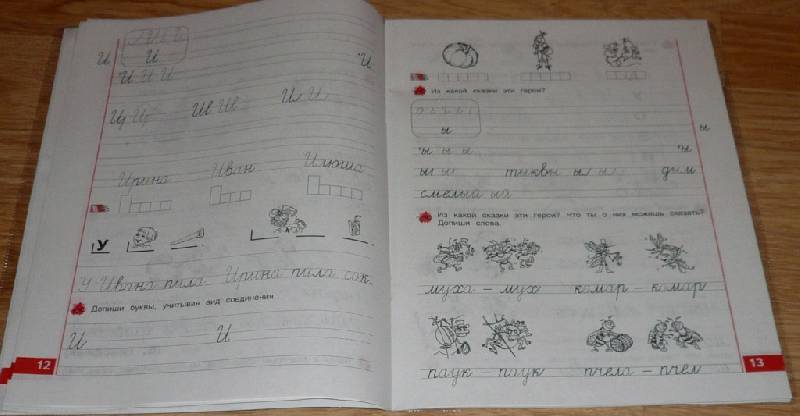 И И И
И И И
Иц Иц Ив Ив Ил И
Ирина Иван Илюша
У
У Ивана пила. Ирина пила сок.
Допиши буквы, учитывая вид соединения.
И И
12
Из какой сказки эти герои?
ы ы
ы ы ы ы
ы ы тыквы ы ы дым
смелый
Из какой сказки эти герои? Что ты о них можешь сказать?
Допиши слова.
муха – мух комар – комар
паук – паук пчела – пчел
13